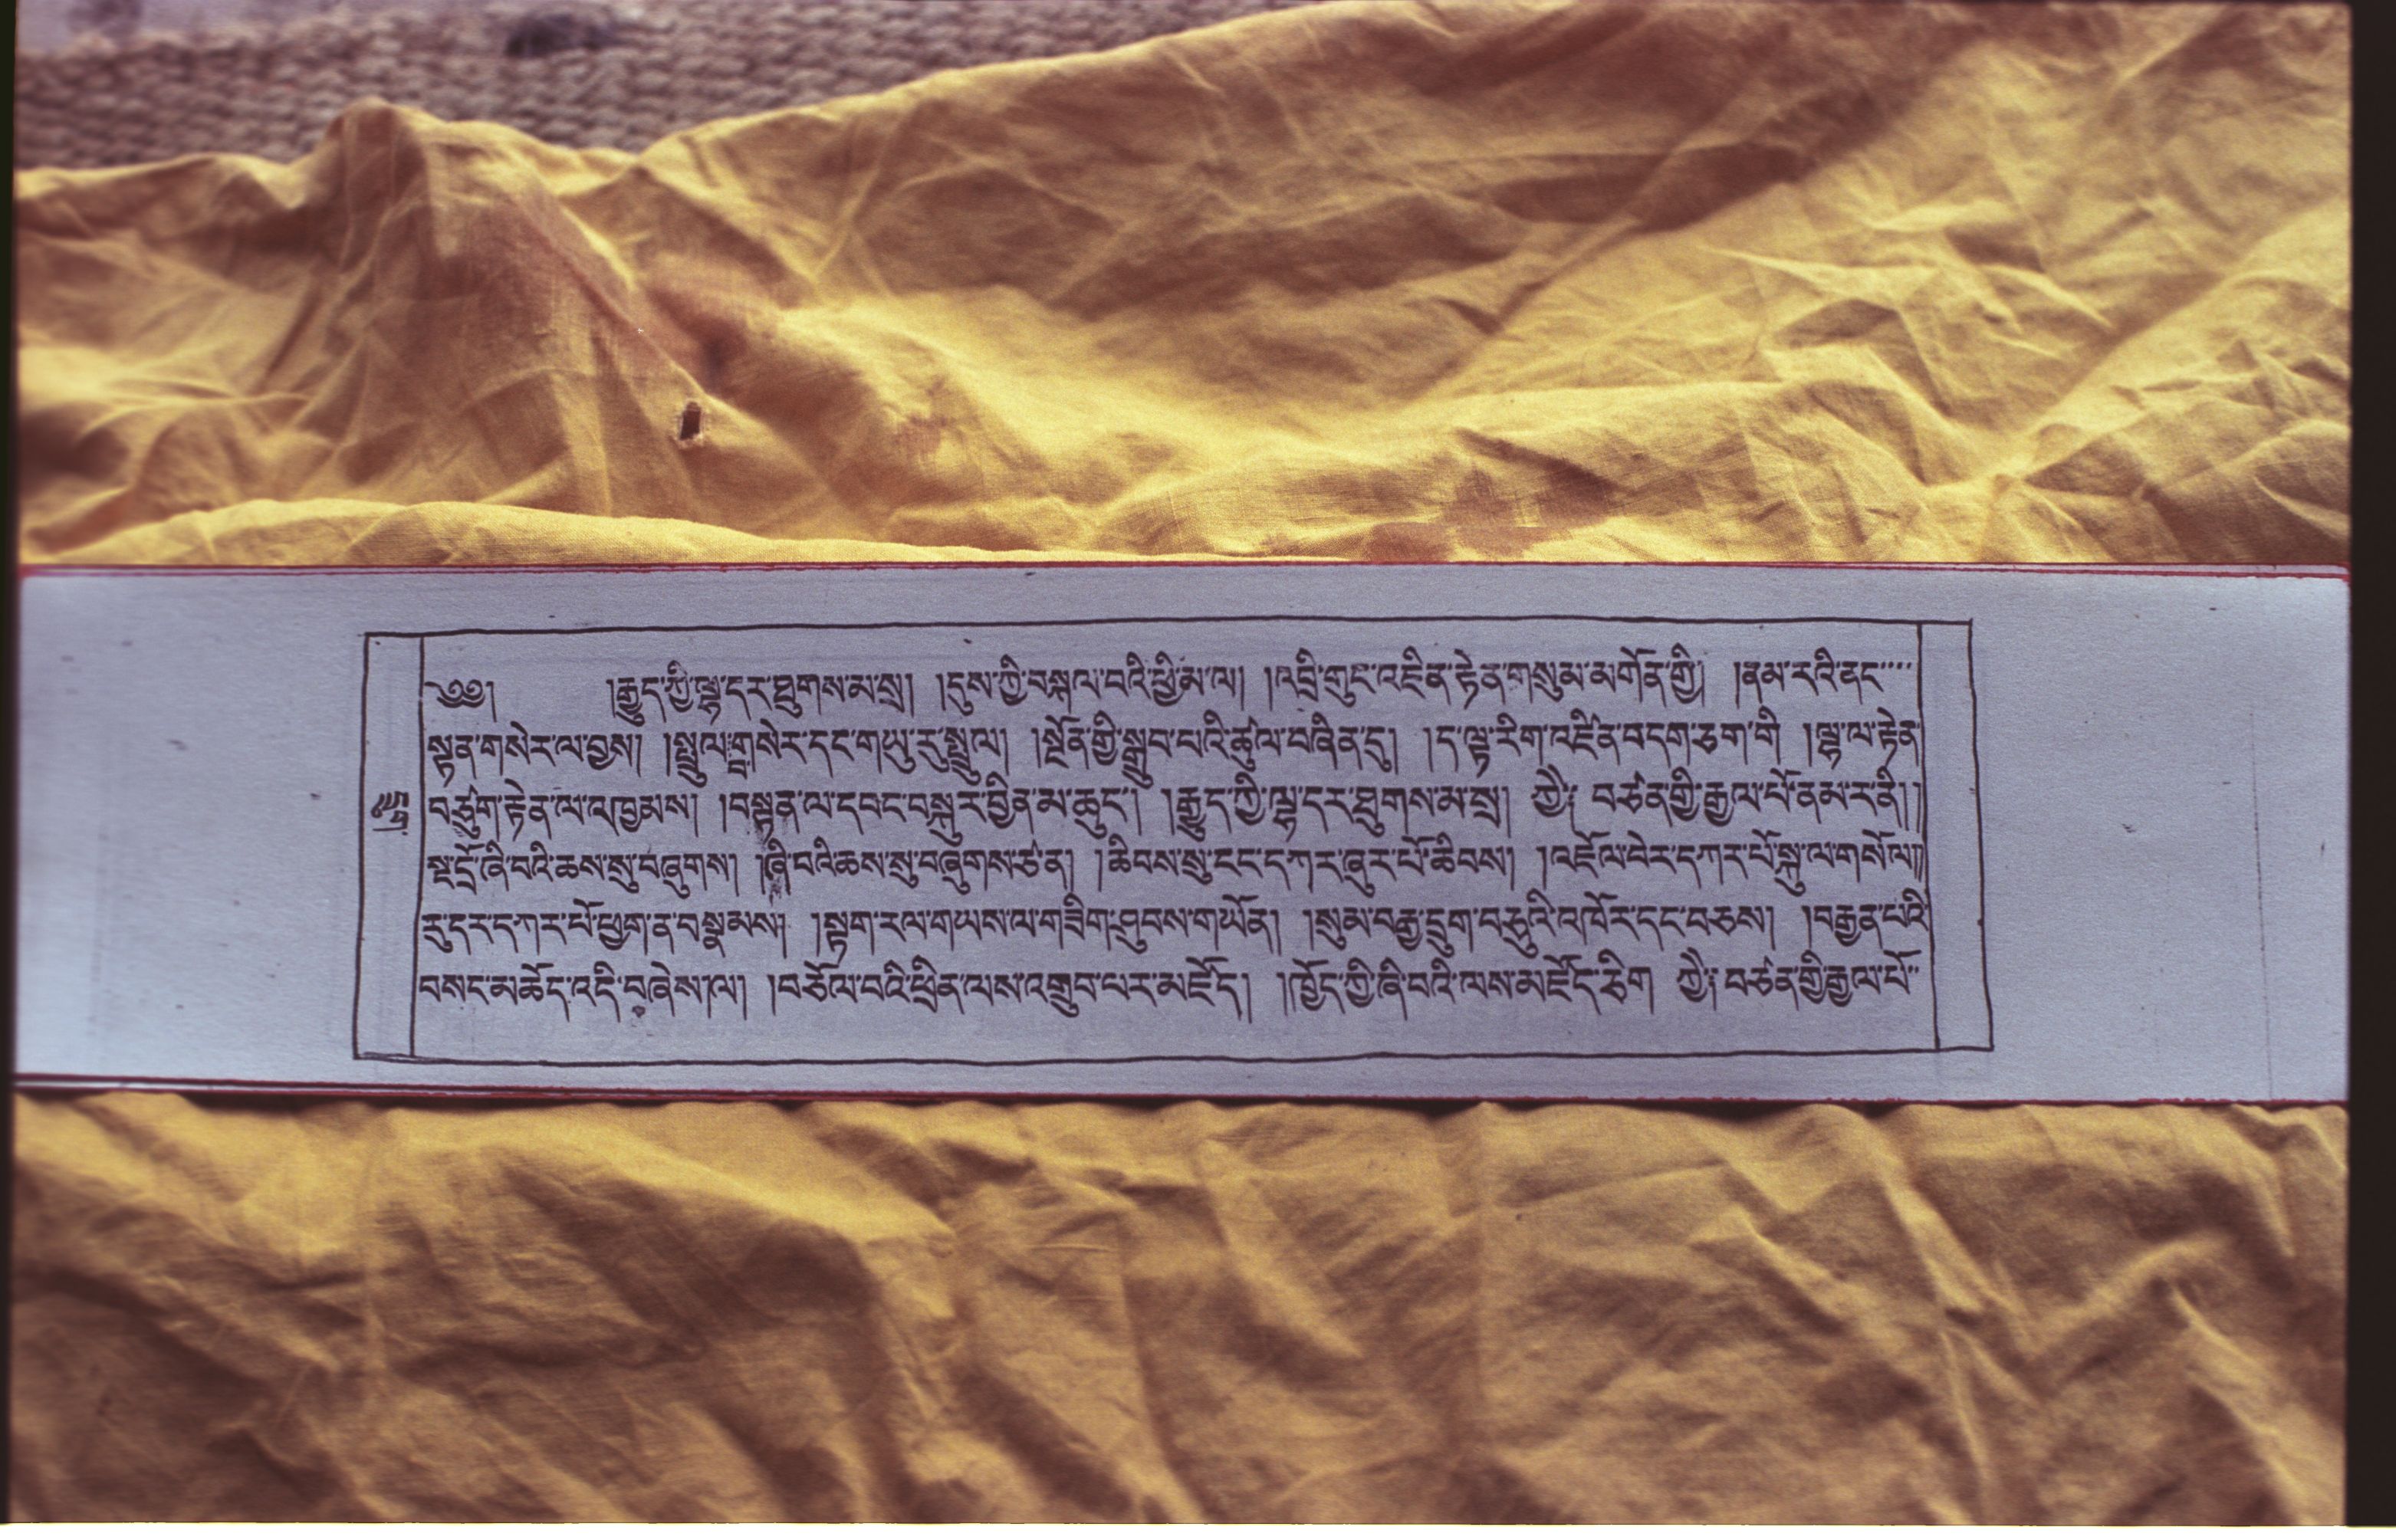 ༄༅། །རྒྱུད་ཀྱི་ལྷ་དར་ཐུགས་མ་སྲ། །དུས་ཀྱི་བསྐལ་བའི་ཕྱི་མ་ལ། །འབྲི་གུང་འཛིན་རྟེན་གསུམ་མགོན་གྱི། །ནམ་རའི་ནང་
སྟན་གསེར་ལ་བྱས། །སྤྲུལ་གླ་སེར་དང་གཡུ་རུ་སྤྲུལ། །སྔོན་གྱི་སྒྲུབ་པའི་ཚུལ་བཞིན་དུ། །ད་ལྟ་རིག་འཛིན་བདག་ཅག་གི །ལྷ་ལ་རྟེན་
བཙུག་རྟེན་ལ་འཁྱམས། །བསྟན་ལ་དབང་བསྐུར་བྱིན་མ་ཆུང་། །རྒྱུད་ཀྱི་ལྷ་དར་ཐུགས་མ་སྲ། ཀྱེ༔ བཙན་གྱི་རྒྱལ་པོ་ནམ་ར་ནི། །
སྔ་དྲོ་ཞི་བའི་ཆས་སུ་བཞུགས། །ཞི་བའི་ཆས་སུ་བཞུགས་ཙ་ན། །ཆིབས་སུ་ངང་དཀར་ཞུར་པོ་ཆིབས། །འཇོལ་བེར་དཀར་པོ་སྐུ་ལ་གསོལ།།
རུ་དར་དཀར་པོ་ཕྱག་ན་བསྣམས། །སྟག་རལ་གཡས་ལ་གཟིག་ཤུབས་གཡོན། །སུམ་བརྒྱ་དྲུག་བཅུའི་འཁོར་དང་བཅས། །བརྒྱན་པའི་
བསང་མཆོད་འདི་བཞེས་ལ། །བཅོལ་བའི་ཕྲིན་ལས་འགྲུབ་པར་མཛོད། །ཁྱོད་ཀྱི་ཞི་བའི་ལས་མཛོད་ཅིག ཀྱེ༔ བཙན་གྱི་རྒྱལ་པོ་